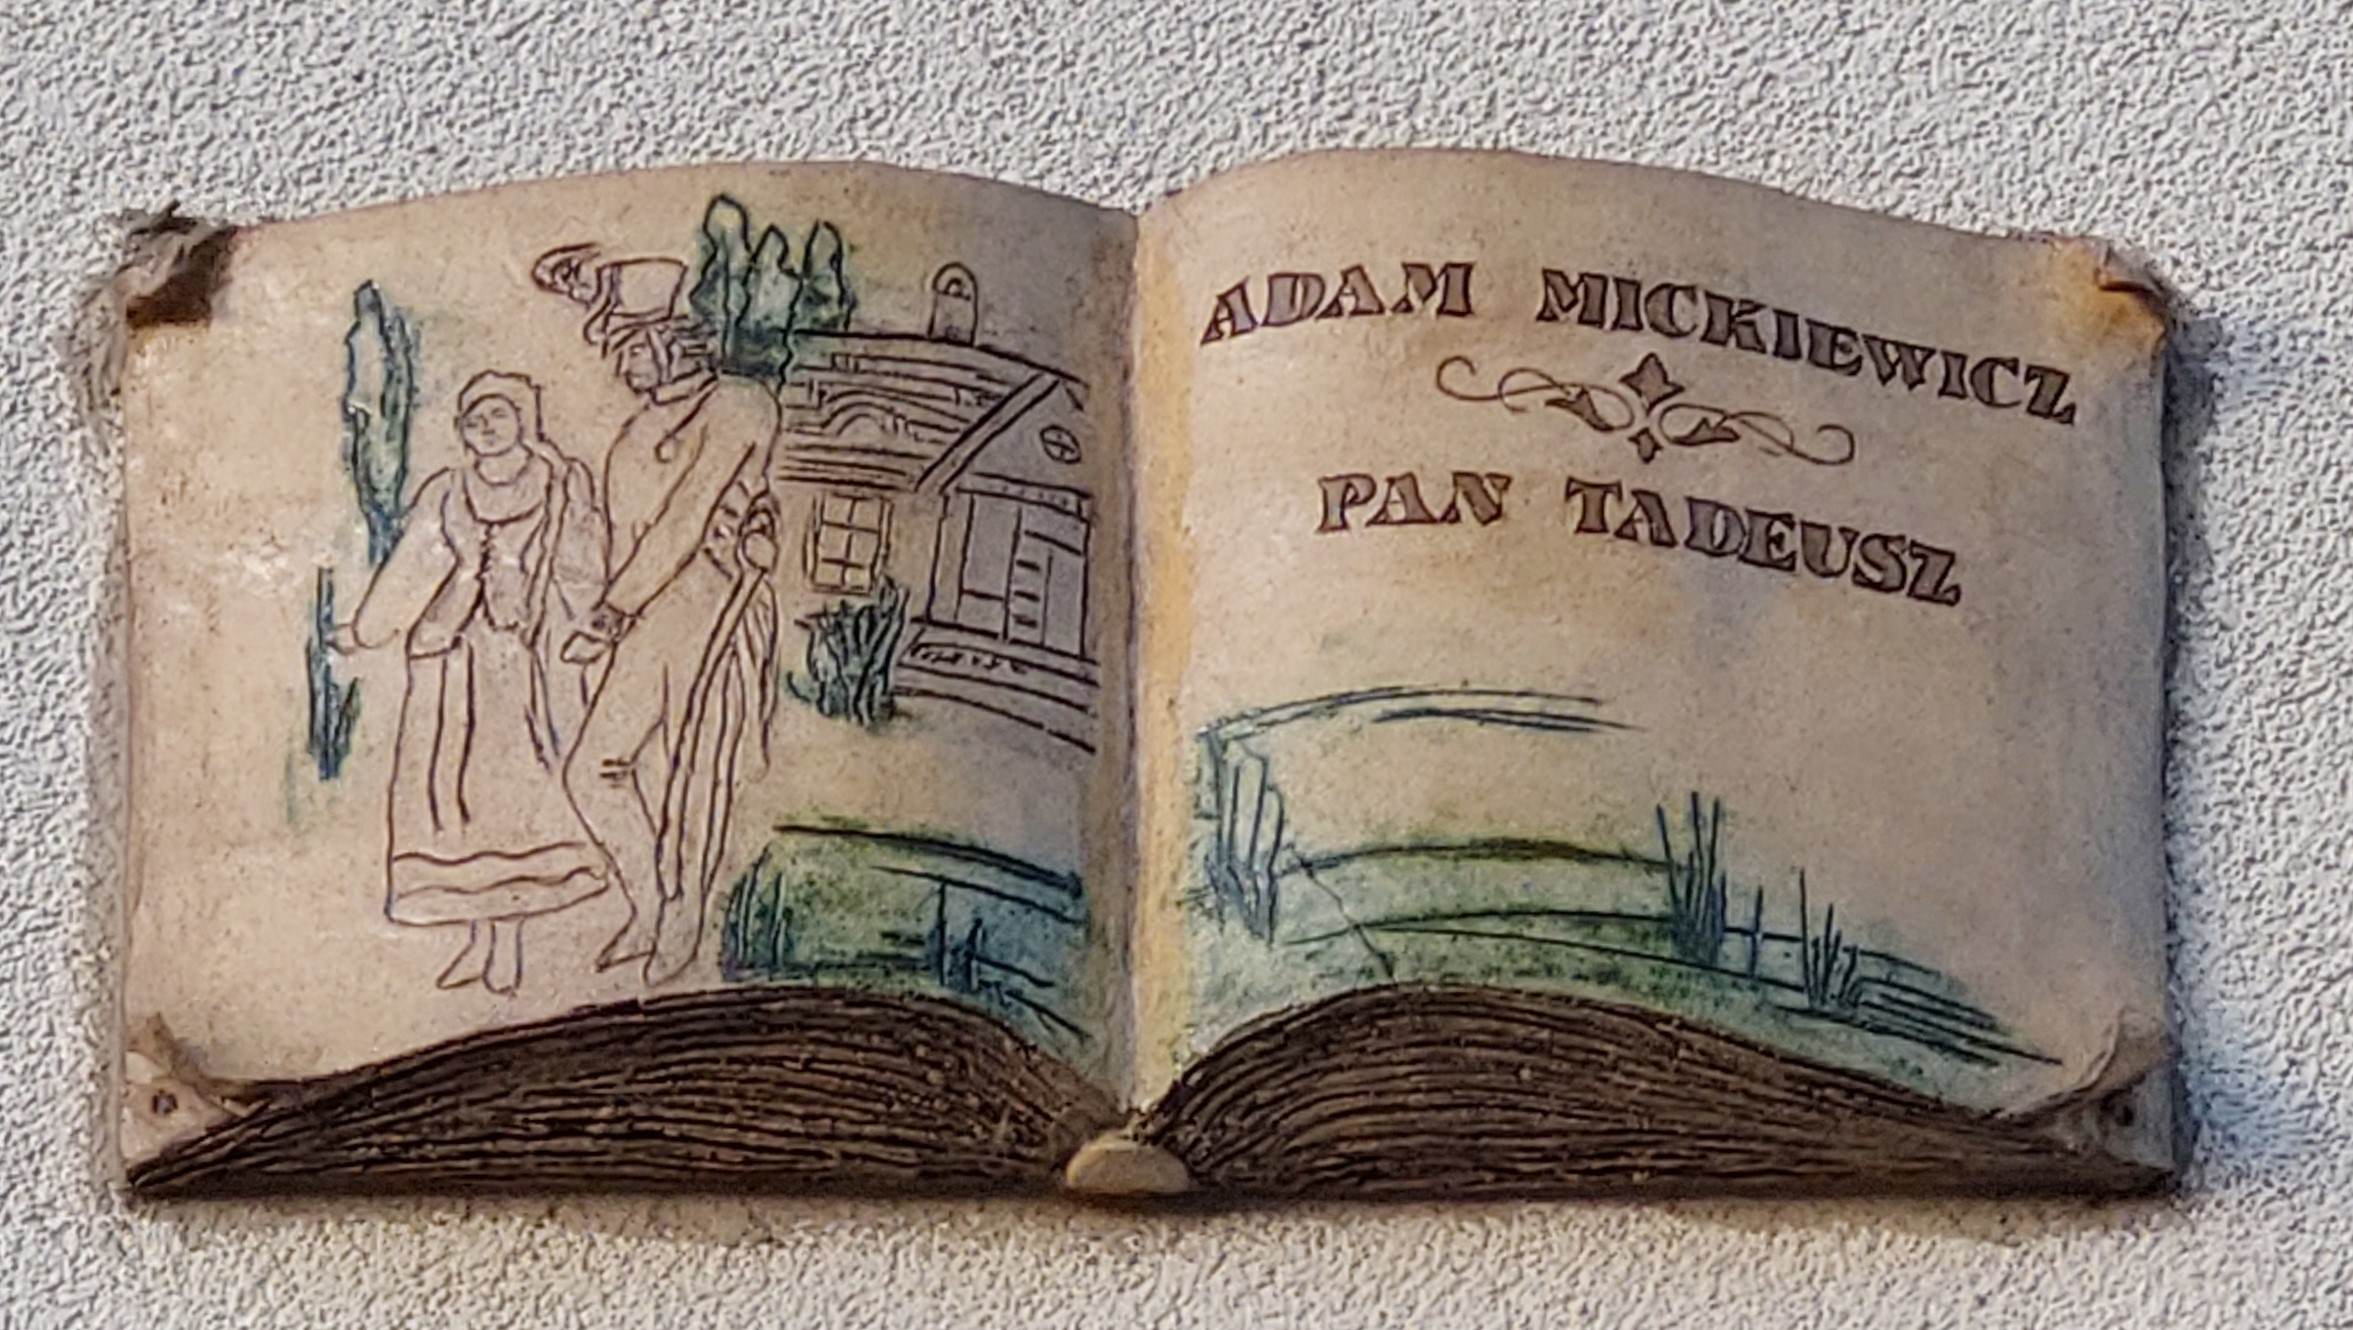 ADAM MICKIEWICZ
PAN TADEUSZ